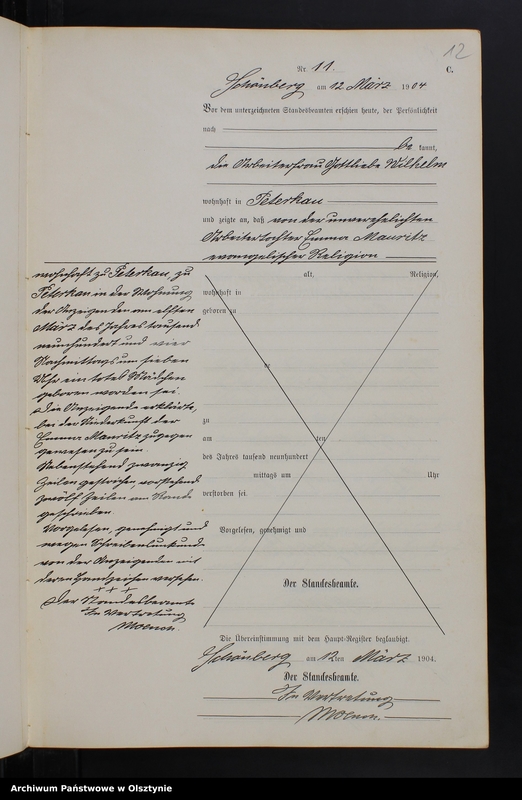 12
Nr. 11.
C.
Schönberg am 12 März 1904
Vor dem unterzeichneten Standesbeamten erschien heute, der Persönlichkeit
nach
be kannt,
die Arbeiterfrau Gottliebe Wilhelm
wohnhaft in Peterkau
und zeigte an, daß von der unverehelichten
Arbeitertochter Emma Mauritz
evangelischer Religion
wohnhaft zu Peterkau, zu
Peterkau in der Wohnung
der Anzeigenden am elften
März des Jahres tausend
neunhundert und vier
Nachmittags um sieben
Uhr ein totes Mädchen
geboren worden sei.
Die Anzeigende erklärte,
bei der Niederkunft der
Emma Mauritz zugegen
gewesen zu sein.
Nebenstehend zwanzig
Zeilen gestrichen, vorstehend
zwölf Zeilen am Rande
geschrieben.
Vorgelesen, genehmigt und
wegen Schreibensunkunde
von der Anzeigenden mit
deren Handzeichen versehen.
+ + +
Der Standesbeamte
In Vertretung
alt, Religion,
wohnhaft in
geboren zu
zu
am ten
des Jahres tausend neunhundert
mittags um Uhr
verstorben sei.
Vorgelesen, genehmigt und
Der Standesbeamte.
Die Übereinstimmung mit dem Haupt-Register beglaubigt.
Schönberg am 12ten März 1904.
Der Standesbeamte.
In Vertretung
Archiwum Państwowe w Olsztynie